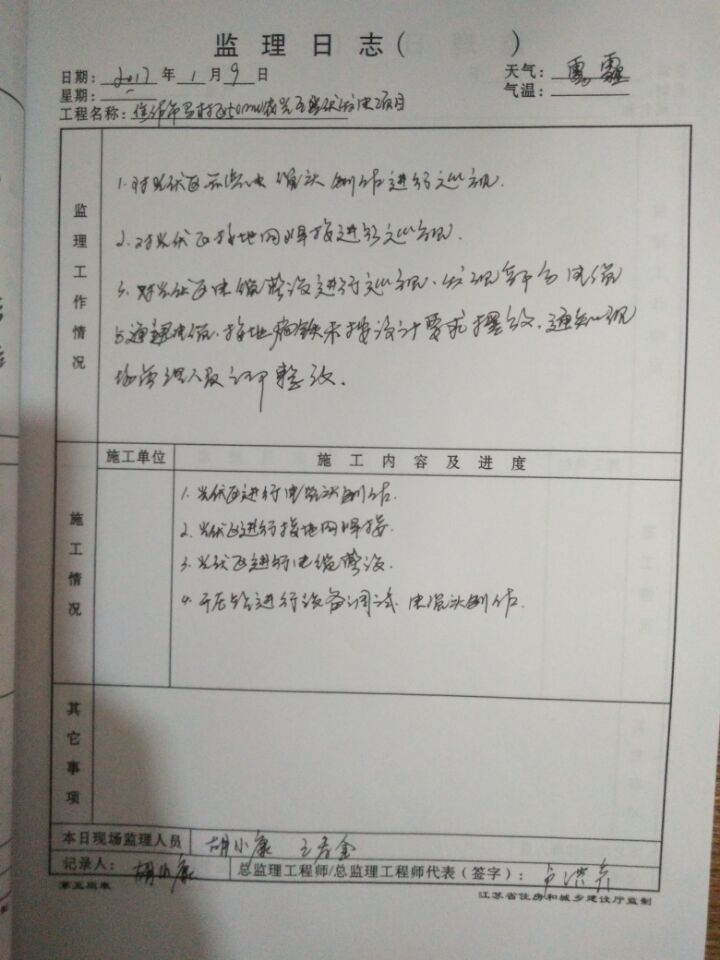 监理日志( )
日期: 2017 年 1 月 9 日
天气: 雾霾
星期: 一
气温:
工程名称: 50MW农光互补光伏发电项目
监理工作情况
1. 对光伏区 电缆头制作进行巡视.
2. 对光伏区接地网焊接进行巡视.
3. 对光伏区电缆敷设进行巡视, 发现部分电缆
接地扁铁未按设计要求摆放, 通知现
场管理人员 整改.
施工单位 施工内容及进度
施工情况
1. 光伏区进行电缆头制作.
2. 光伏区进行接地网焊接.
3. 光伏区进行电缆敷设.
4. 开关站进行设备调试 电缆头制作.
其它事项
本日现场监理人员 胡小康 王春金
记录人: 胡小康 总监理工程师/总监理工程师代表(签字):
第五版表 江苏省住房和城乡建设厅监制